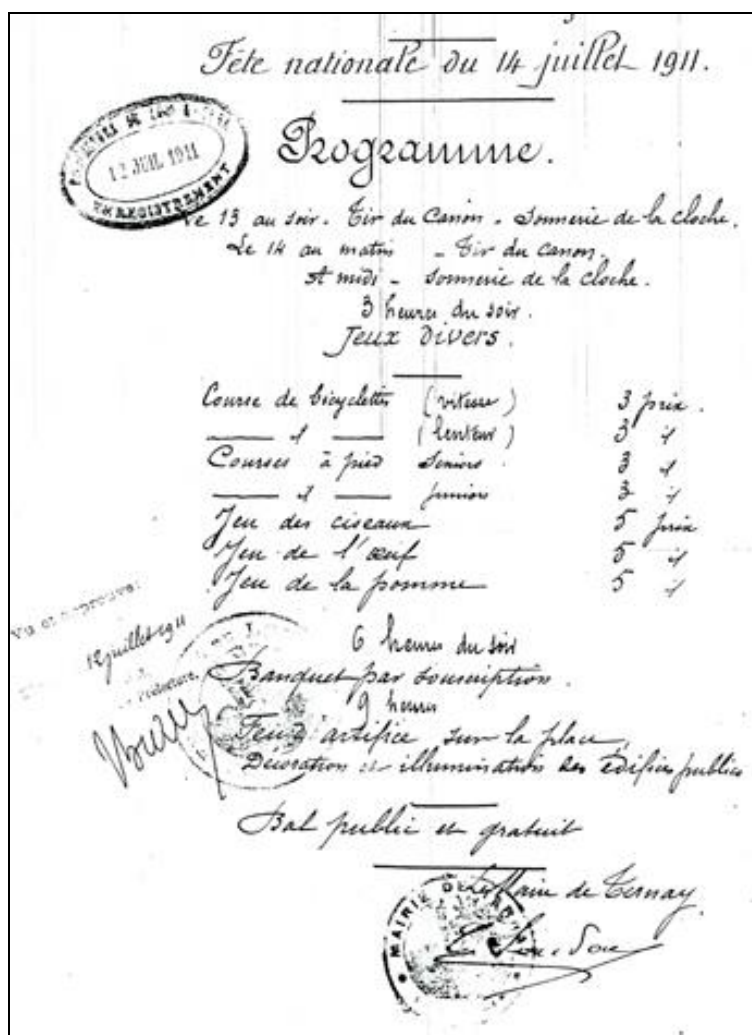 Fête nationale du 14 juillet 1911.
Programme.
12 JUIL 1911
ENREGISTREMENT
Le 13 au soir. Tir du Canon. Sonnerie de la cloche.
Le 14 au matin _ Tir du canon.
A midi _ Sonnerie de la cloche.
3 heures du soir.
Jeux divers.
Course de bicyclettes (vitesse) 3 prix.
— d — (lenteur) 3 d
Courses à pied Seniors. 3 d
— d — juniors 3 d
Jeu des ciseaux 5 prix
Jeu de l'œuf 5 d
Jeu de la pomme 5 d
Vu et approuvé:
12 juillet 1911
6 heures du soir
Banquet par souscription.
9 heures
Feu d'artifice sur la place,
Décoration et illumination des édifices publics
Bal public et gratuit
Le Maire de Ternay
MAIRIE DE